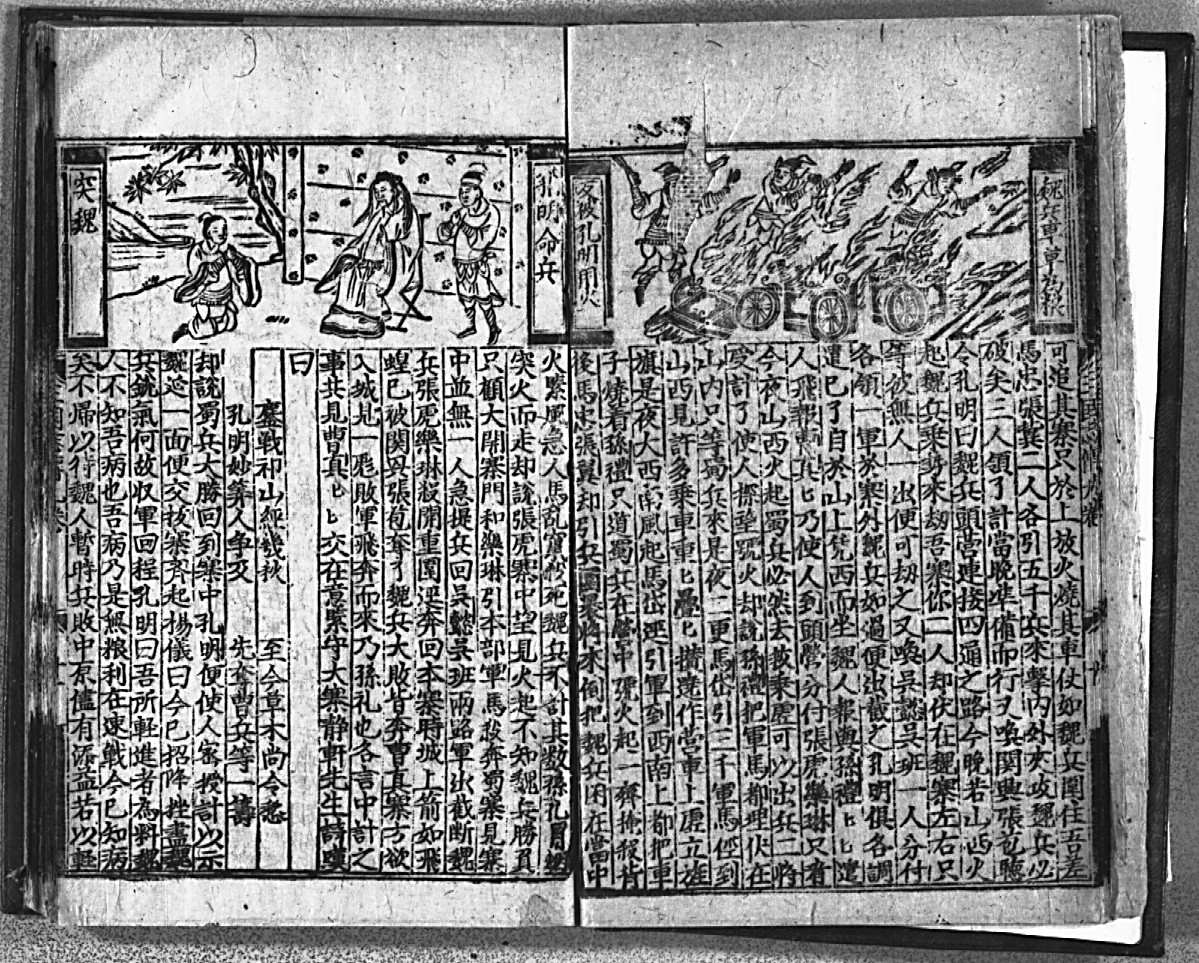 魏兵車車為
反被孔明用火
可追其寨只於上放火燒其車仗如魏兵圍住吾差
馬忠張翼二人各引五千兵來擊內外夾攻魏兵必
破矣三人領了計當晚准備而行又喚関興張苞聽
令孔明曰魏兵頭營連接四通之路今晚若山西火
起魏兵乗勢來劫吾寨你二人却伏在魏寨左右只
等彼無人一出便可劫之又喚吳懿吳班二人分付
各領一軍於寨外魏兵如過便出截之孔明俱各調
遣已了自於山上凭西而坐魏人報與孫禮匕匕遣
人飛報曹真匕乃使人到頭營分付張虎樂琳只看
今夜山西火起蜀兵必然去救乗虛可以出兵二將
受計了使人探望號火却說孫禮把軍馬都埋伏在
山內只等蜀兵來是夜二更馬岱引三千軍馬徑到
山西見許多乗車重匕疊匕攢遶作營車上虛立旌
旗是夜大西南風起馬岱逕引軍到西南上都把車
子燒着孫禮只道蜀兵在營中號火起一齊掩殺背
後馬忠張翼却引兵來倒把魏兵困在當中
孔明命兵
突魏
火緊風急人馬乱竄死魏兵不計其数孫礼冒烟
突火而走却說張虎寨中望見火起不知魏兵勝負
只顧大開寨門和樂琳引本部軍馬殺奔蜀寨見寨
中並無一人急提兵回吳懿吳班兩路軍出截断魏
兵張虎樂琳殺開重圍逕奔回本寨時城上箭如飛
蝗已被関兴張苞奪了魏兵大敗皆奔曹真寨方欲
入城見一彪敗軍飛奔而來乃孫礼也各言中計之
事共見曹真匕匕交在意緊守大寨静軒先生詩嘆
曰
鏖戰祁山經幾秋 至今草木尚含愁
孔明妙筭人争羡 先奪曹兵等一籌
却說蜀兵大勝回到寨中孔明便使人密授計以示
魏延一面便交拔寨齊起楊儀曰今已招降挫盡魏
兵銳氣何故收軍回程孔明曰吾所軽進者為料魏
人不知吾病也吾病乃是無粮利在速戰今已知病
矣不帰以待魏人暫時兵敗中原儘有添益若以軽